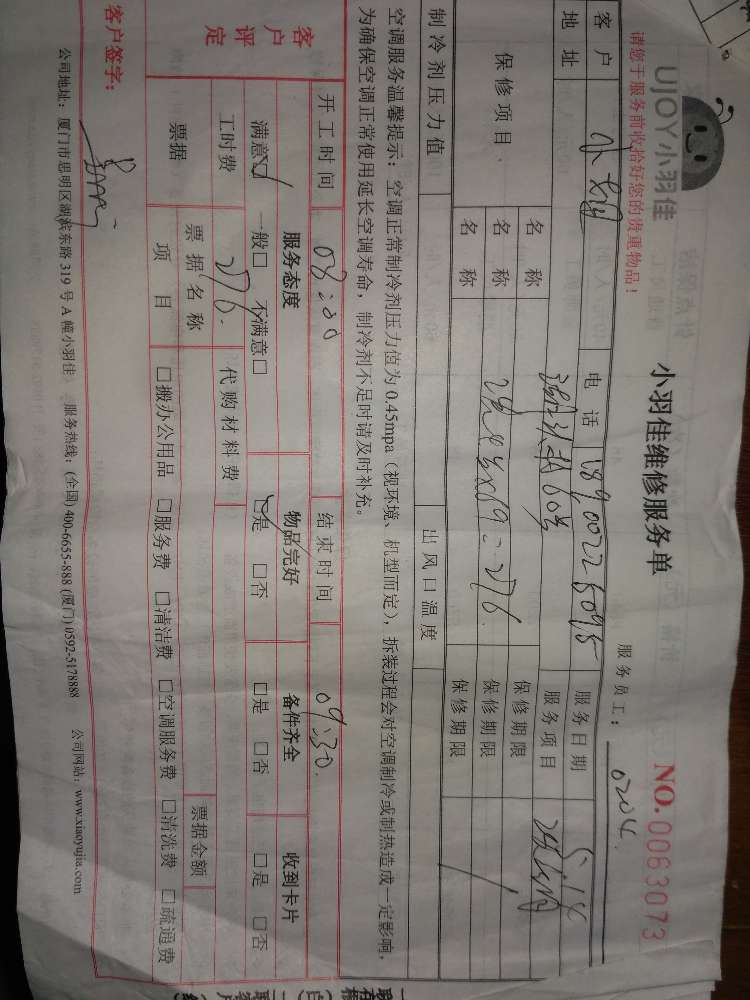 UJOY小羽佳
小羽佳维修服务单
NO. 0063073
请您于服务前收拾好您的贵重物品！
服务员工： 0204
客户
电话 18900226095
服务日期 5.18
地址
服务项目
保修项目
名称
保修期限
名称
保修期限
名称
保修期限
制冷剂压力值
出风口温度
空调服务温馨提示：空调正常制冷剂压力值为 0.45mpa（视环境、机型而定），拆装过程会对空调制冷或制热造成一定影响，
为确保空调正常使用延长空调寿命，制冷剂不足时请及时补充。
开工时间 08:20
结束时间 09:30.
客户评定
服务态度
物品完好
备件齐全
收到卡片
满意☑ 一般□ 不满意□
☑是 □否
□是 □否
□是 □否
工时费 276.
代购材料费
票据
票据名称
票据金额
项目
□搬办公用品 □服务费 □清洁费 □空调服务费 □清洗费 □疏通费
客户签字：
公司地址：厦门市思明区湖滨东路 319 号 A 幢小羽佳 服务热线：(全国) 400-6655-888 (厦门) 0592-5178888 公司网站：www.xiaoyujia.com